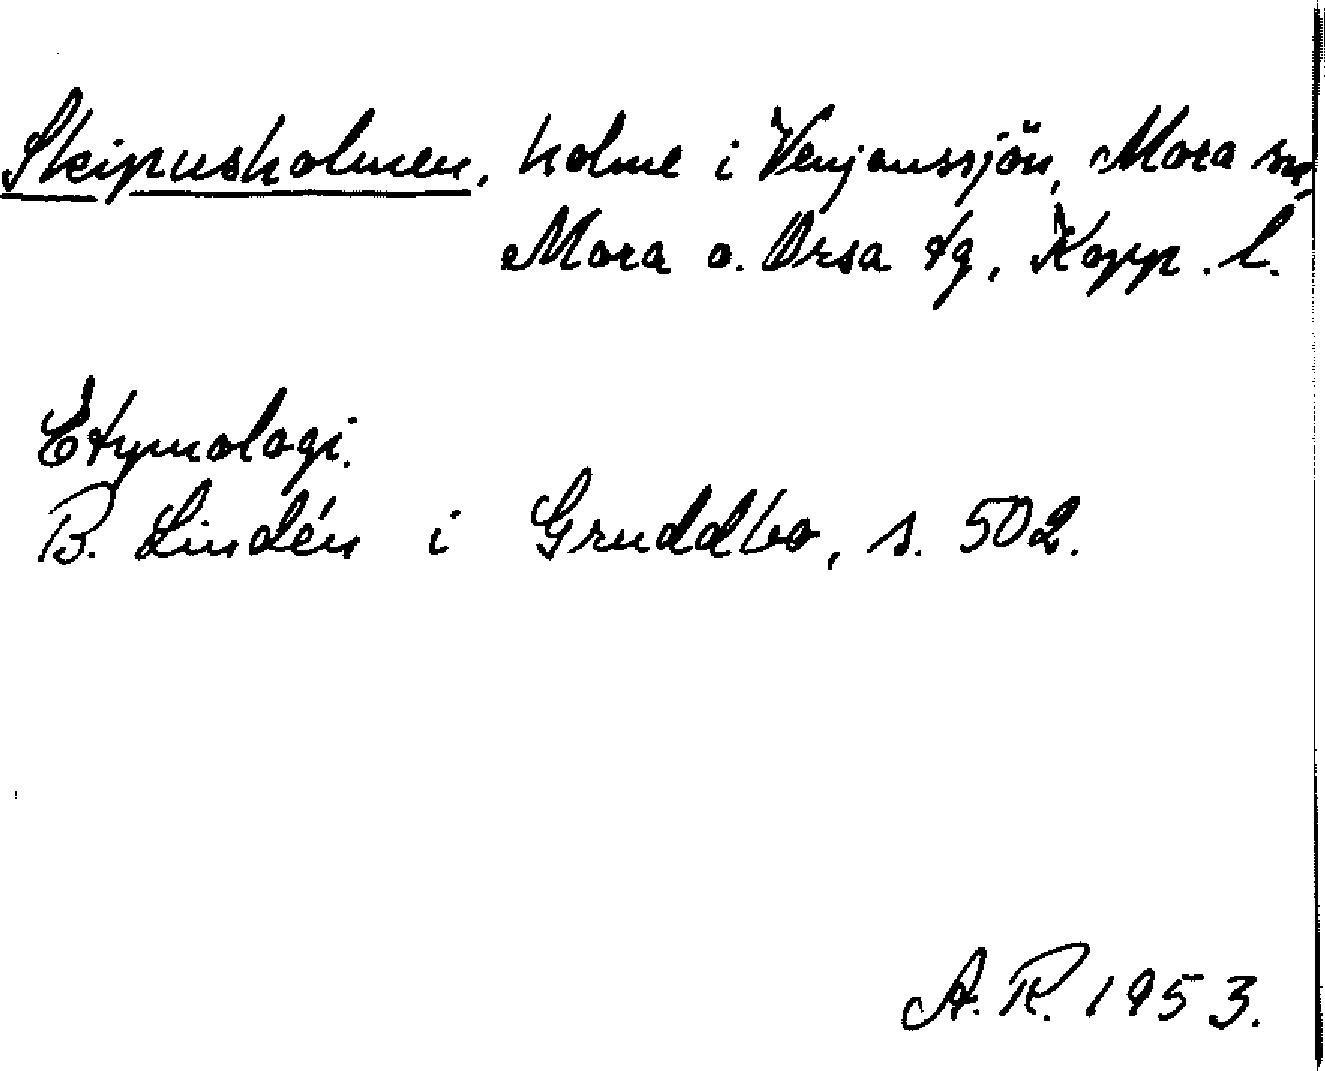 Skipusholmen, holme i Venjanssjön, Mora sn,
Mora o. Orsa tg, Kopp. l.
Etymologi.
B. Lindén i Gruddbo, s. 502.
A. R. 1953.